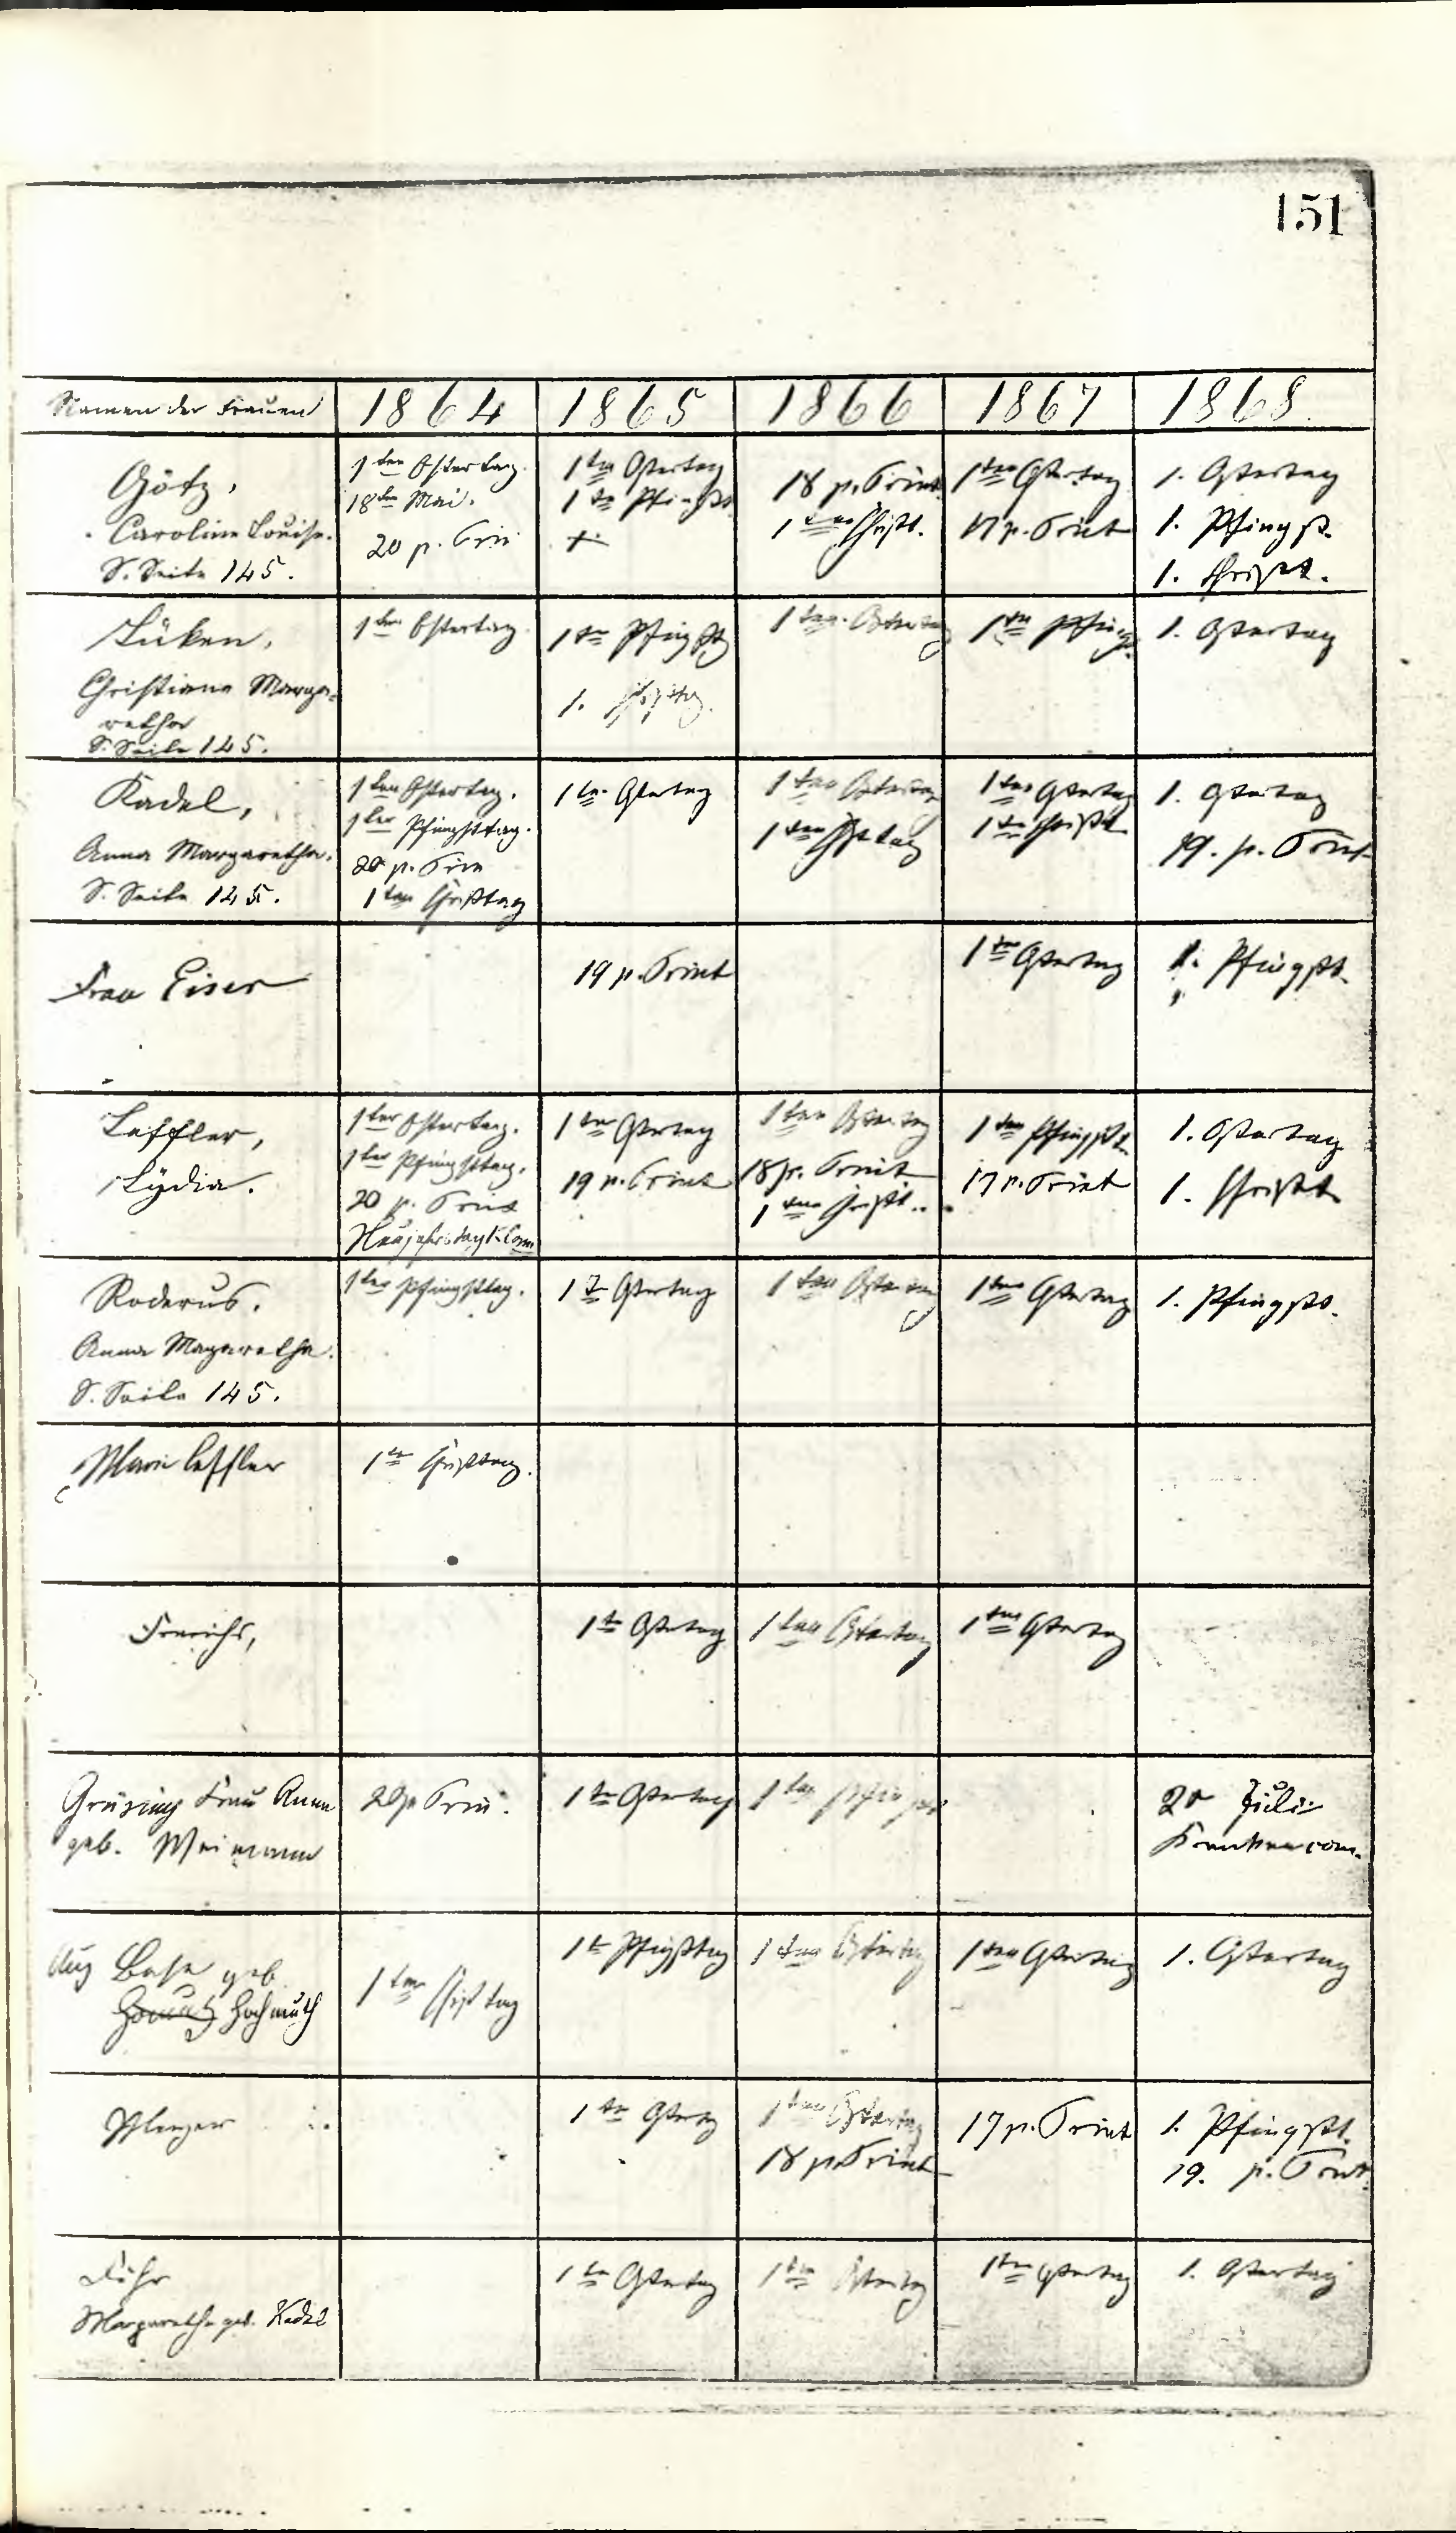 151
Namen der Frauen 1864 1865 1866 1867 1868.
Götz,
Caroline Louise.
S. Seite 145.
1ten Ostertag.
18ten Mai.
20 p. Trin
1ten Ostertag
1ten Pfingst.
+
18 p. Trinit
1ten Christ.
1ten Ostertag
17 p. Trinit
1. Ostertag
1. Pfingst.
1. Christ.
Lüken,
Christiane Marga-
retha
S. Seite 145.
1ten Ostertag.
1ten Pfingsttg
1. Christtg.
1ten Ostertag
1ten Pfingst.
1. Ostertag
Kadel,
Anna Margaretha.
S. Seite 145.
1ten Ostertag.
1ter Pfingsttag.
20 p. Trin
1ten Christtag
1ten Ostertag
1ten Ostertag
1ten Christtag
1ten Ostertag
1ten Christt
1. Ostertag
19. p. Trinit
Frau Eiser
19 p. Trinit
1ten Ostertag
1. Pfingst.
Leffler,
Lydia.
1ter Ostertag.
1ter Pfingsttag.
20 p. Trinit
Neujahrstag K. Com
1ten Ostertag
19 p. Trinit
1ten Ostertag
18 p. Trinit
1ten Christt.
1ten Pfingstt.
17 p. Trinit
1. Ostertag
1. Christt.
Roderus.
Anna Magaretha.
S. Seite 145.
1ter Pfingsttag.
1t Ostertag
1ten Ostertag
1ten Ostertag
1. Pfingst.
Marie Leffler
1te Christtag.
Frerichs,
1te Ostertag
1ten Ostertag
1ten Ostertag
Grüsing Frau Anna
geb. Meimann
20 p Trin.
1te Ostertag
1ten Pfingst
20 Juli
Krankencom.
Aug Base geb
Hochmuth
1ten Christtag
1t Pfingsttag
1ten Ostertag
1ten Ostertag
1. Ostertag
1ten Ostertg
1ten Ostertag
18 p. Trinit
17 p. Trinit
1. Pfingstt.
19. p. Trinit.
Löhr
Margaretha geb. Kadel
1te Ostertag
1ten Ostertag
1ten Ostertag
1. Ostertag